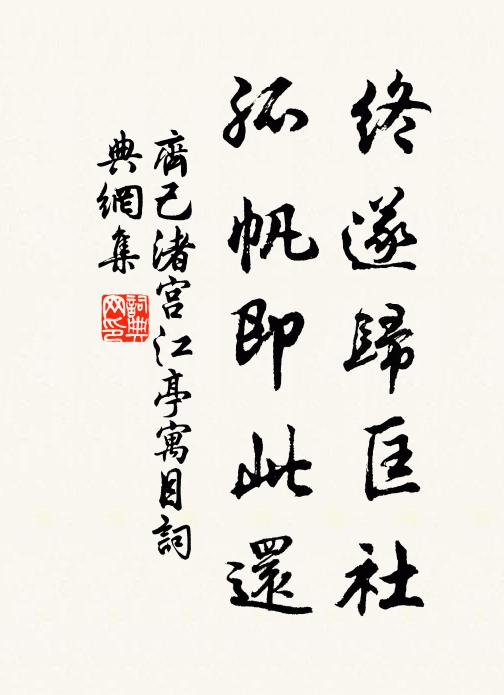 終遂歸匡社
孤帆即此還
齊己渚宮江亭寓目詞
典網集
詞典网印